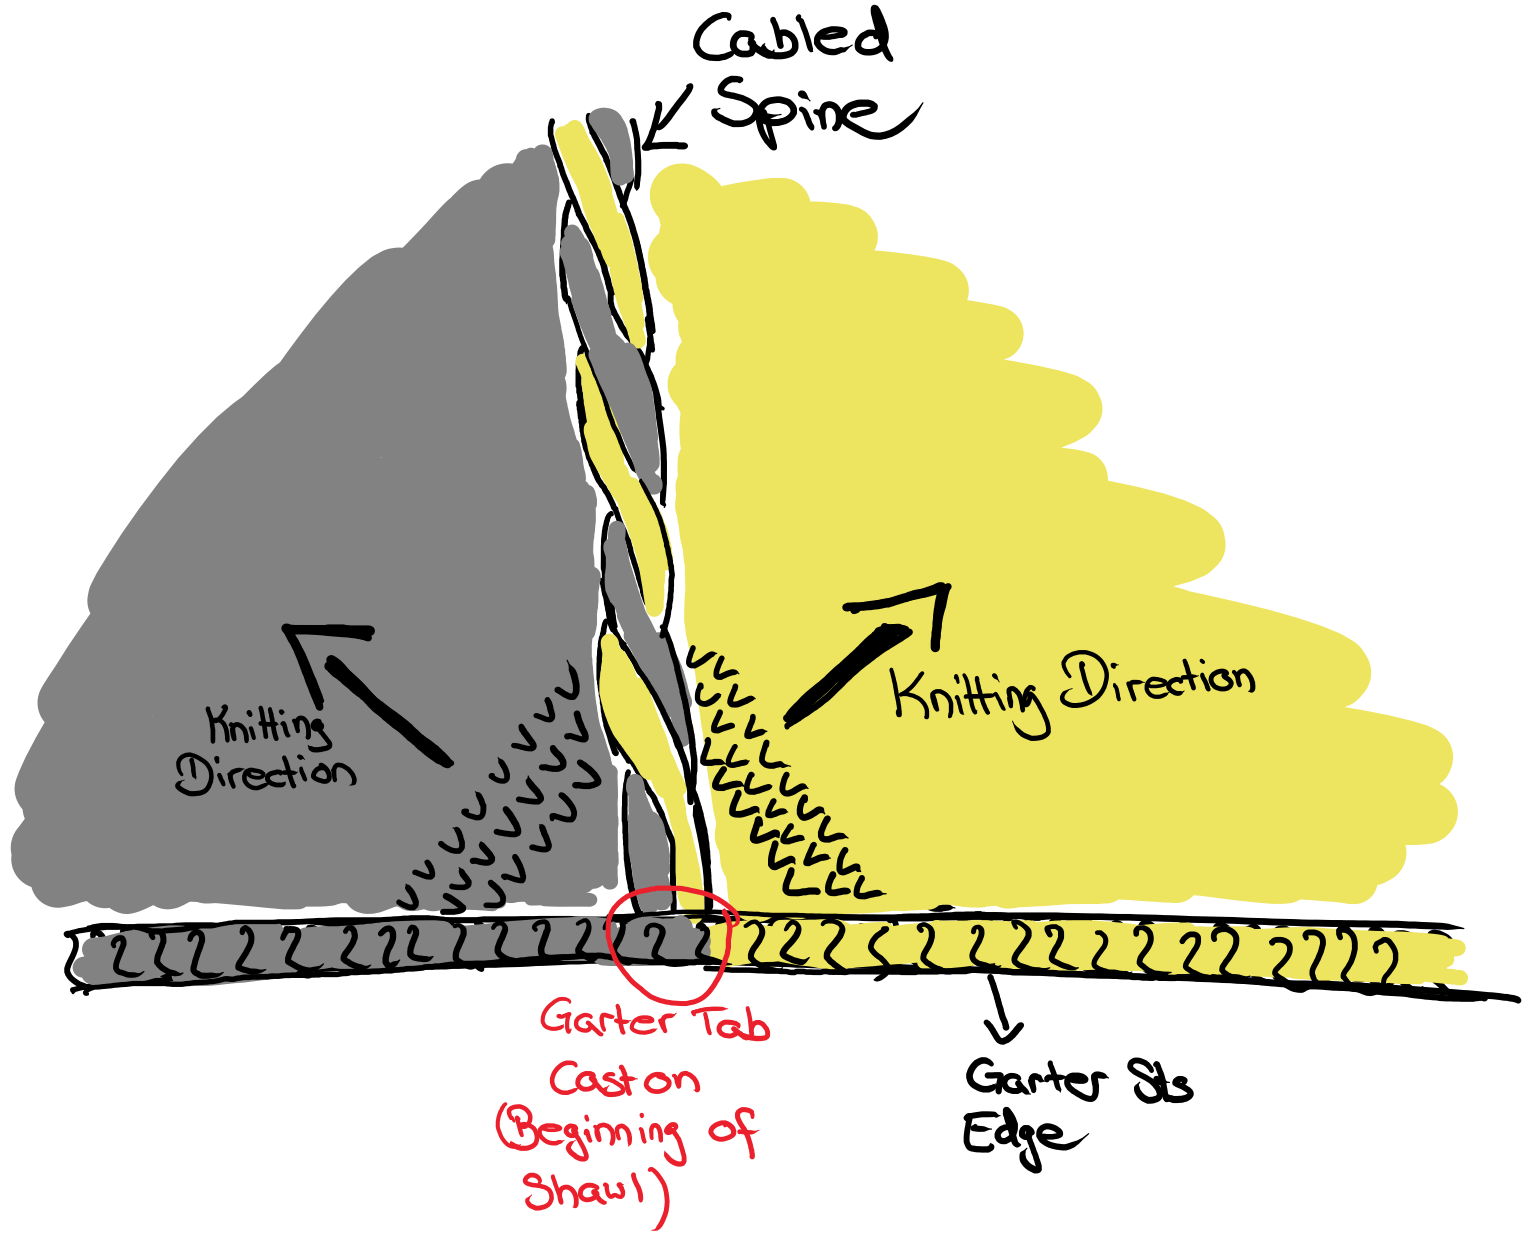 Cabled
Spine
Knitting
Direction
Knitting Direction
Garter Tab
Cast on
(Beginning of
Shawl)
Garter Sts
Edge